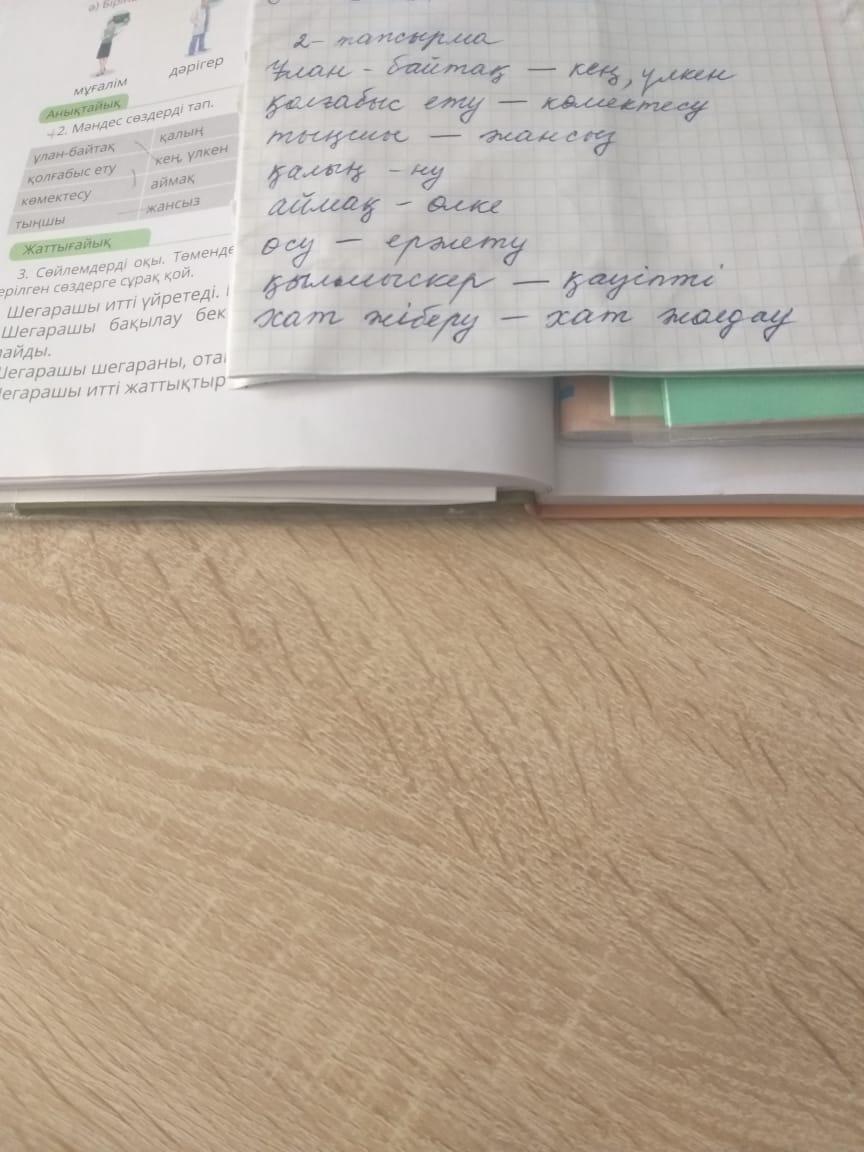 мұғалім
дәрігер
Анықтайық
2. Мәндес сөздерді тап.
ұлан-байтақ
қалың
қолғабыс ету
кең, үлкен
көмектесу
аймақ
тыңшы
жансыз
Жаттығайық
3. Сөйлемдерді оқы. Төменде
ерілген сөздерге сұрақ қой.
Шегарашы итті үйретеді.
Шегарашы бақылау бек
айды.
Шегарашы шегараны, ота
Шегарашы итті жаттықтыр
2- тапсырма
Ұлан - байтақ — кең, үлкен
қолғабыс ету — көмектесу
тыңшы — жансыз
қалың - ну
аймақ - өлке
өсу —
қылмыскер — қауіпті
хат жіберу — хат жолдау